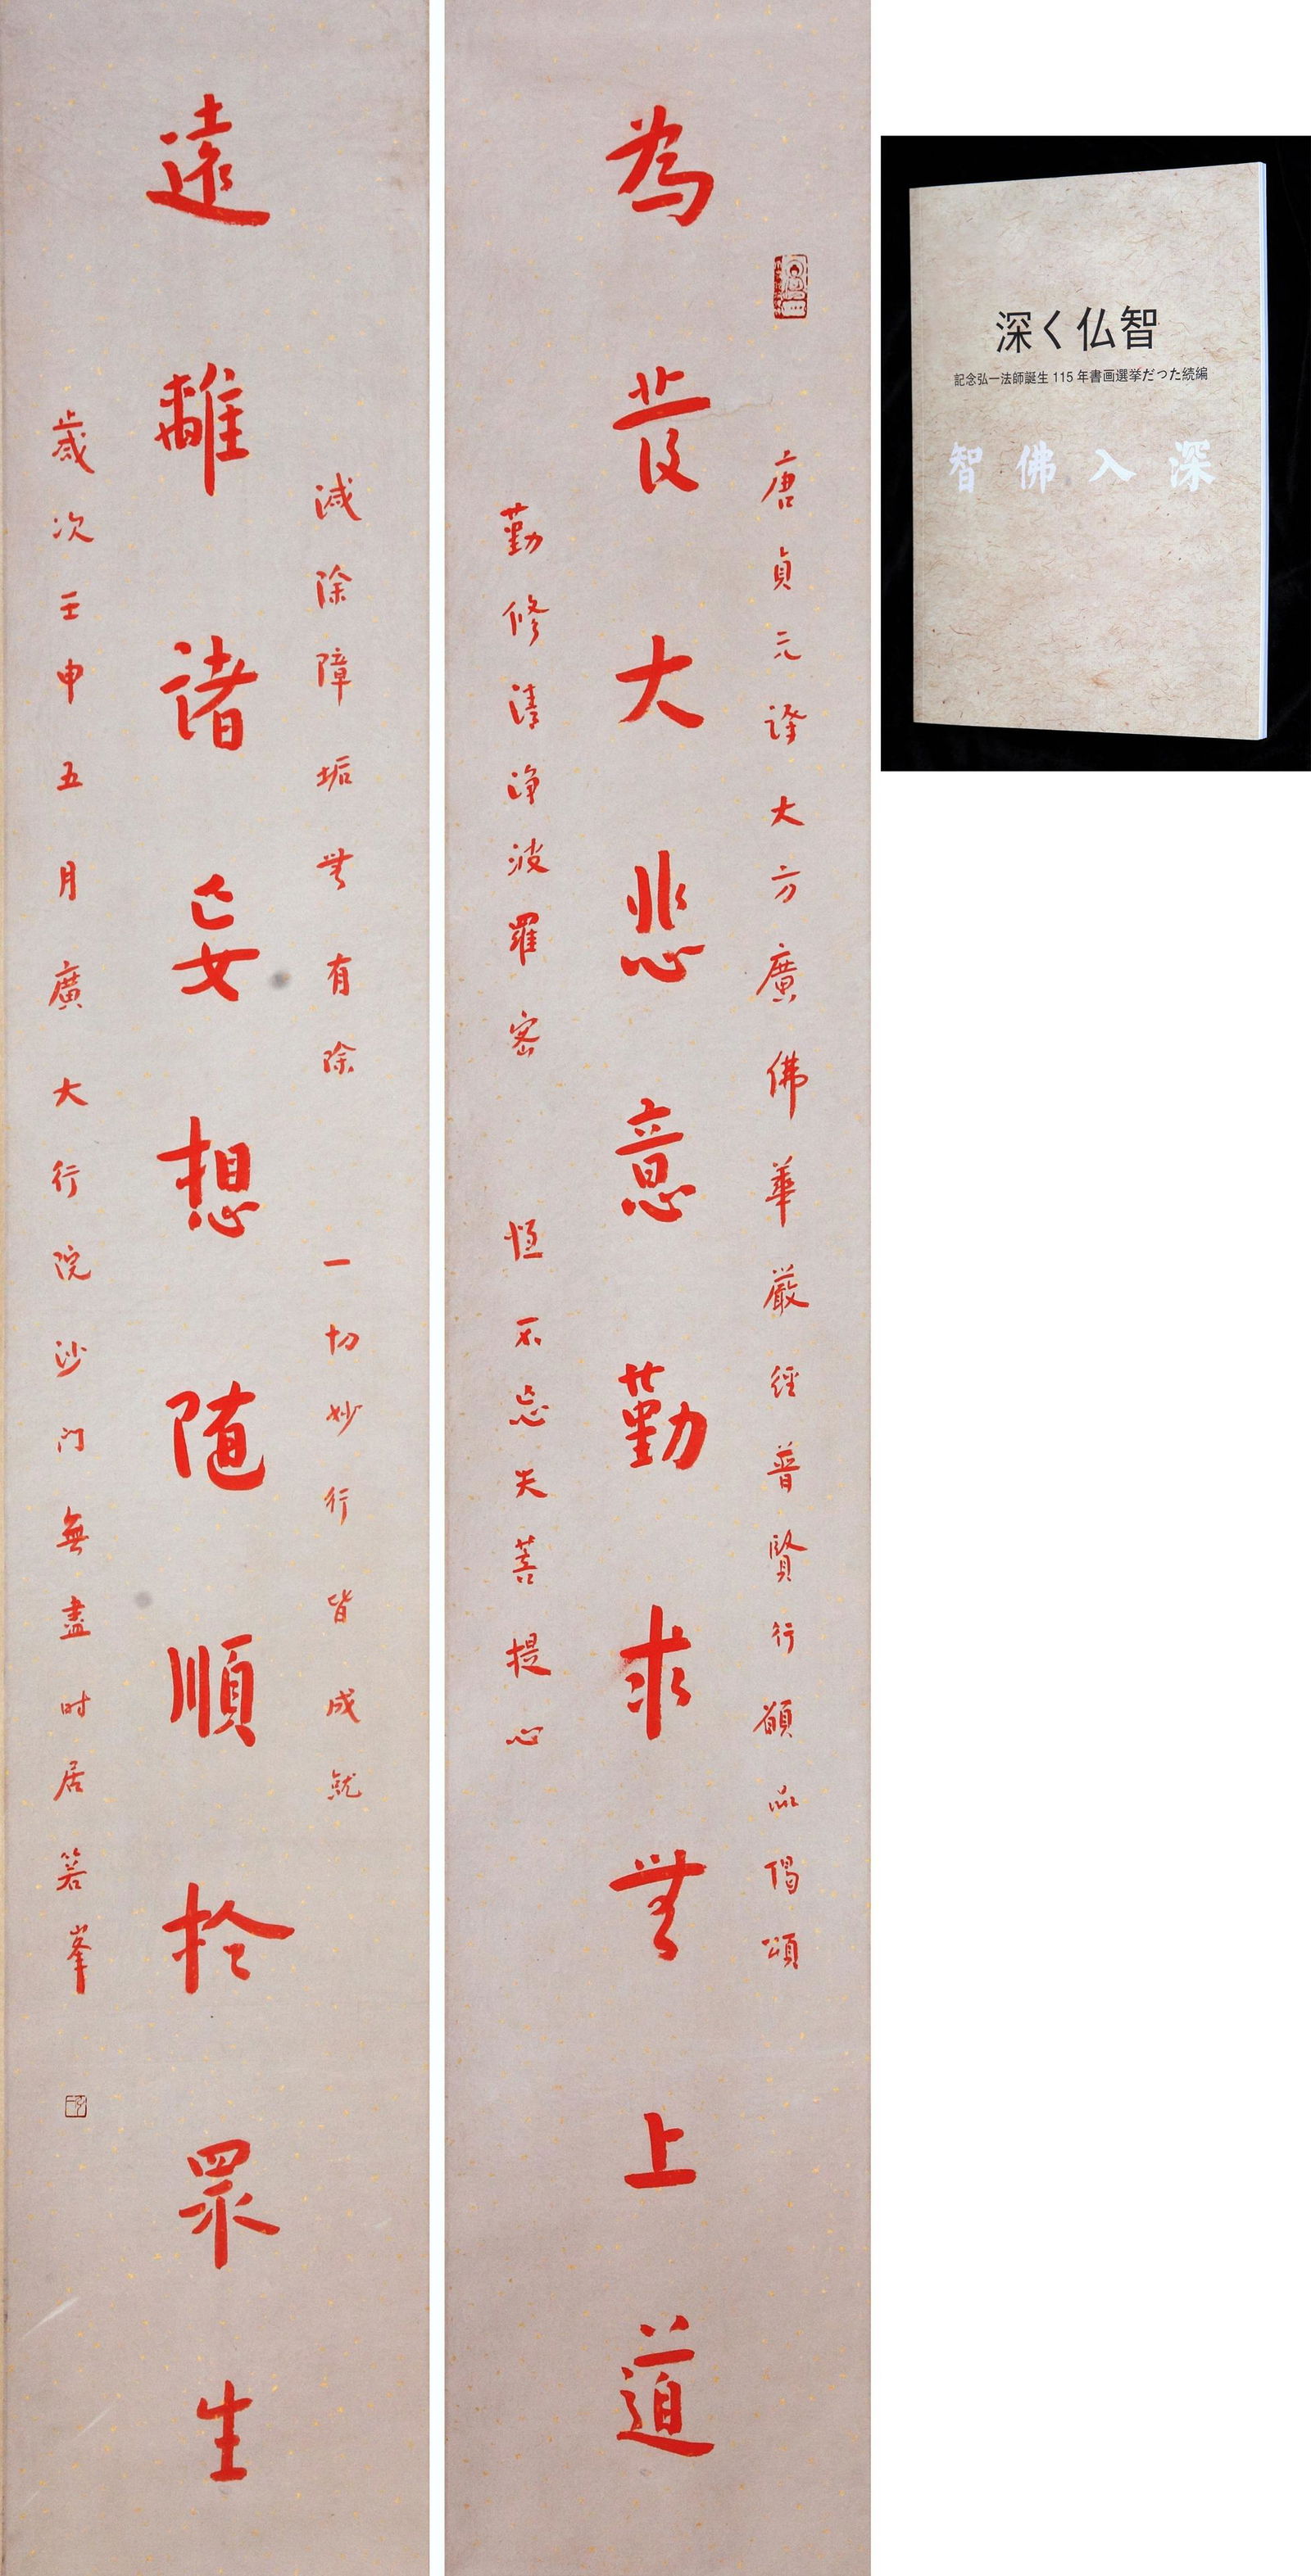 唐貞元譯大方廣佛華嚴經普賢行願品偈頌
為發大悲意勤求無上道
勤修清淨波羅密　恆不忘失菩提心
滅除障垢無有除　一切妙行皆成就
遠離諸妄想隨順於眾生
歲次壬申五月廣大行院沙门無盡时居箬峯
深く仏智
記念弘一法師誕生 115 年書画選挙だつた続編
智佛入深